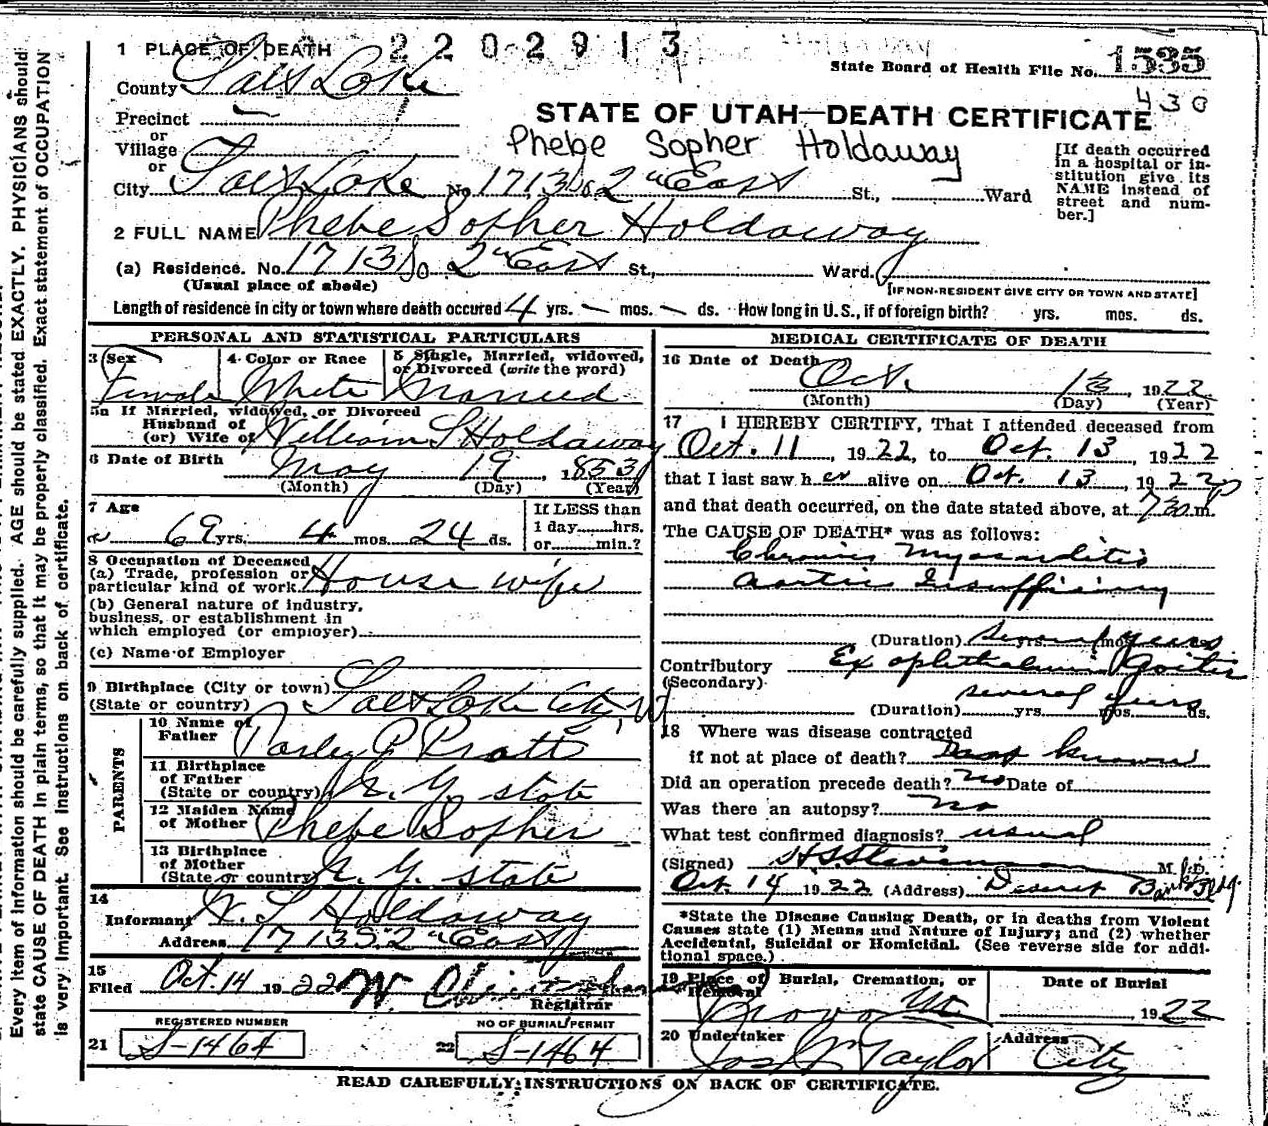 1 PLACE OF DEATH 2202913
State Board of Health File No. 1535
430
County Salt Lake
Precinct —
or
Village
or
City Salt Lake No. 1713 So 2nd East St., Ward
STATE OF UTAH—DEATH CERTIFICATE
Phebe Sopher Holdaway
[If death occurred
in a hospital or in-
stitution give its
NAME instead of
street and num-
ber.]
2 FULL NAME Phebe Sopher Holdaway
(a) Residence. No. 1713 So 2nd East St., Ward.
(Usual place of abode) [IF NON-RESIDENT GIVE CITY OR TOWN AND STATE]
Length of residence in city or town where death occured 4 yrs. — mos. — ds. How long in U.S., if of foreign birth? yrs. mos. ds.
PERSONAL AND STATISTICAL PARTICULARS
3 Sex 4 Color or Race 5 Single, Married, widowed,
or Divorced (write the word)
Female White Married
5a If Married, widowed, or Divorced
Husband of
(or) Wife of William S Holdaway
6 Date of Birth May 19 1853
(Month) (Day) (Year)
7 Age If LESS than
69 yrs. 4 mos. 24 ds. 1 day hrs.
or min.?
8 Occupation of Deceased
(a) Trade, profession or
particular kind of work House wife
(b) General nature of industry,
business, or establishment in
which employed (or employer)
(c) Name of Employer
9 Birthplace (City or town)
(State or country) Salt Lake City, Ut
PARENTS
10 Name of
Father Parley P. Pratt
11 Birthplace
of Father
(State or country) N. Y. state
12 Maiden Name
of Mother Phebe Sopher
13 Birthplace
of Mother
(State or country) N. Y. state
14
Informant W. S Holdaway
Address 1713 S 2nd East
15
Filed Oct. 14 1922 W.
Registrar
REGISTERED NUMBER NO OF BURIAL PERMIT
21 S-1464 22 S-1464
MEDICAL CERTIFICATE OF DEATH
16 Date of Death
Oct. 13, 1922
(Month) (Day) (Year)
17 I HEREBY CERTIFY, That I attended deceased from
Oct. 11, 1922, to Oct. 13, 1922
that I last saw her alive on Oct. 13, 1922
and that death occurred, on the date stated above, at 7 30 P m.
The CAUSE OF DEATH* was as follows:
Chronic Myocarditis
Aortic Insufficiency
(Duration) several years yrs. mos.
Contributory Exophthalmic Goiter
(Secondary) several years
(Duration) yrs. mos. ds.
18 Where was disease contracted
if not at place of death? known
Did an operation precede death? no Date of
Was there an autopsy? No
What test confirmed diagnosis? usual
(Signed) M. D.
Oct. 14 1922 (Address) Deseret Bank Bldg.
*State the Disease Causing Death, or in deaths from Violent
Causes state (1) Means and Nature of Injury; and (2) whether
Accidental, Suicidal or Homicidal. (See reverse side for addi-
tional space.)
19 Place of Burial, Cremation, or
Removal Date of Burial
Provo Ut. , 1922
20 Undertaker Address
Jos Wm Taylor City
READ CAREFULLY INSTRUCTIONS ON BACK OF CERTIFICATE.
Every item of information should be carefully supplied. AGE should be stated EXACTLY. PHYSICIANS should
state CAUSE OF DEATH in plain terms, so that it may be properly classified. Exact statement of OCCUPATION
is very important. See instructions on back of certificate.